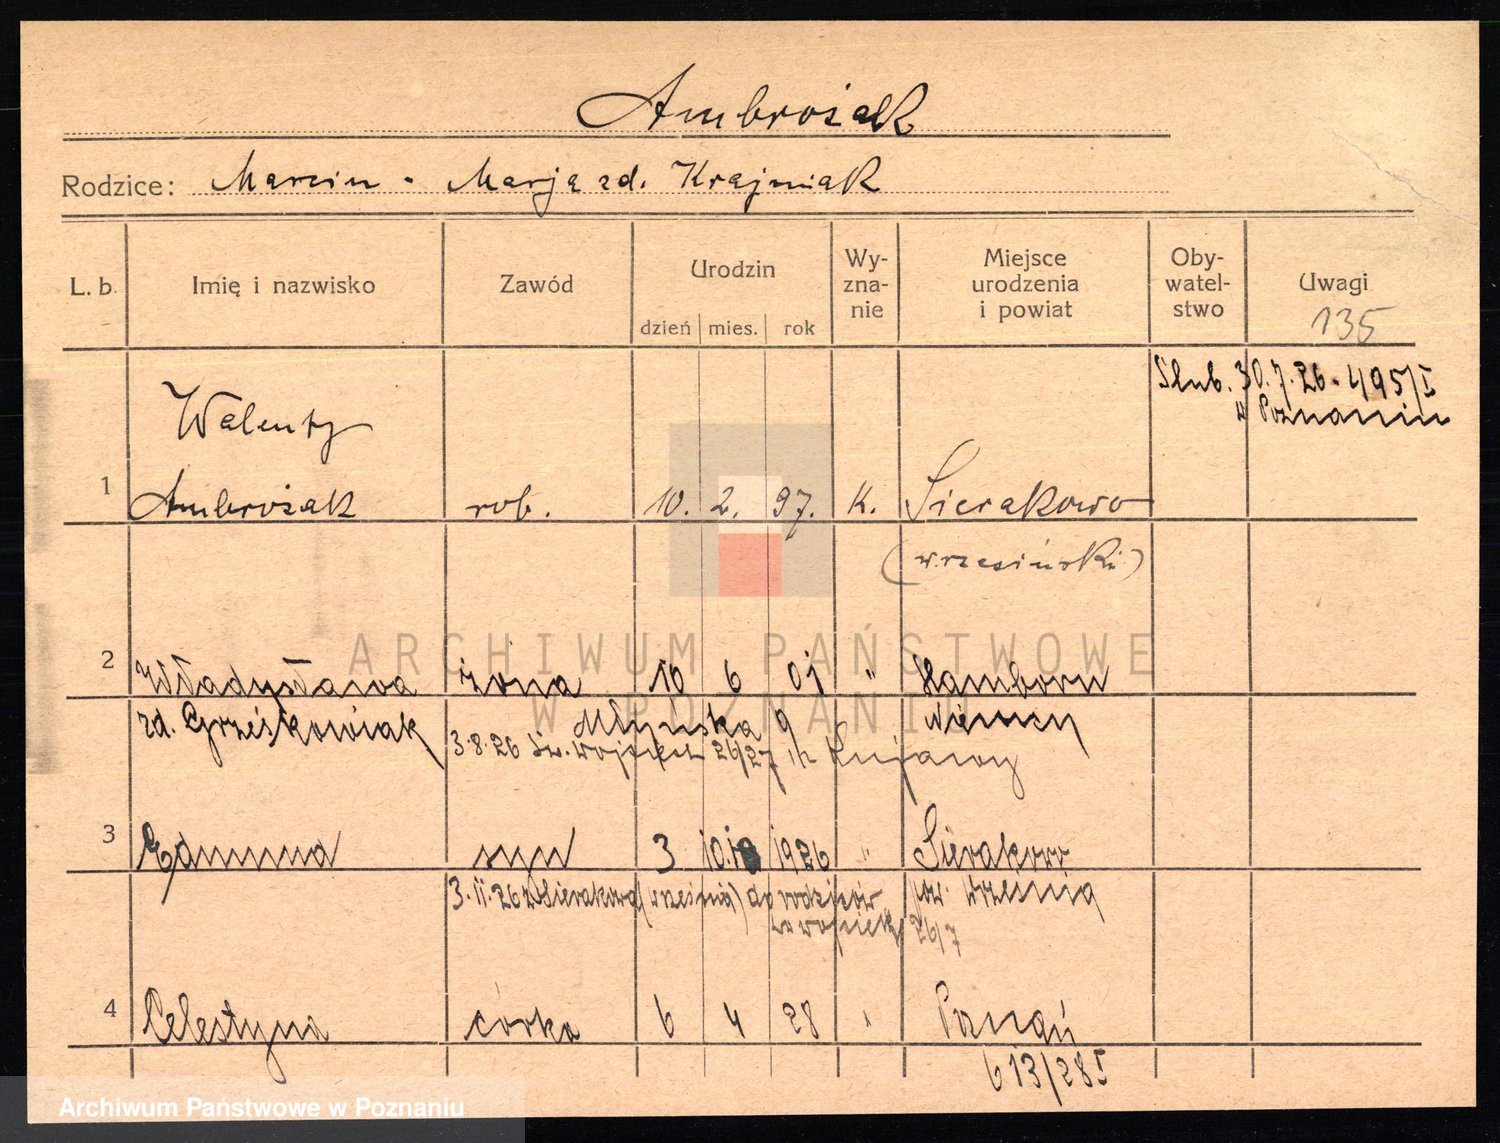 Ambrożak
Rodzice: Marcin - Marja zd. Krajniak
L. b. Imię i nazwisko Zawód Urodzin Wy-zna-nie Miejsce urodzenia i powiat Oby-watel-stwo Uwagi
dzień mies. rok
135
Ślub. 30.7.26 - 495/I
w Poznaniu
Walenty
1 Ambrożak rob. 10. 2. 97. K. Sierakowo
(wrzesiński)
2 Władysława żona 10 6 01 " Hamborn
zd. Grześkowiak Młyńska 9 Niemcy
3.8.26 Św. Wojciech 26/27 Kujawy
3 Edmund syn 3 10. 1926 " Sierakowo
3.11.26 z Sierakowa (września) do rodziców pow. Września
26/7
4 Celestyna córka 6 4 28 " Poznań
613/28 I
ARCHIWUM PAŃSTWOWE
W POZNANIU
Archiwum Państwowe w Poznaniu